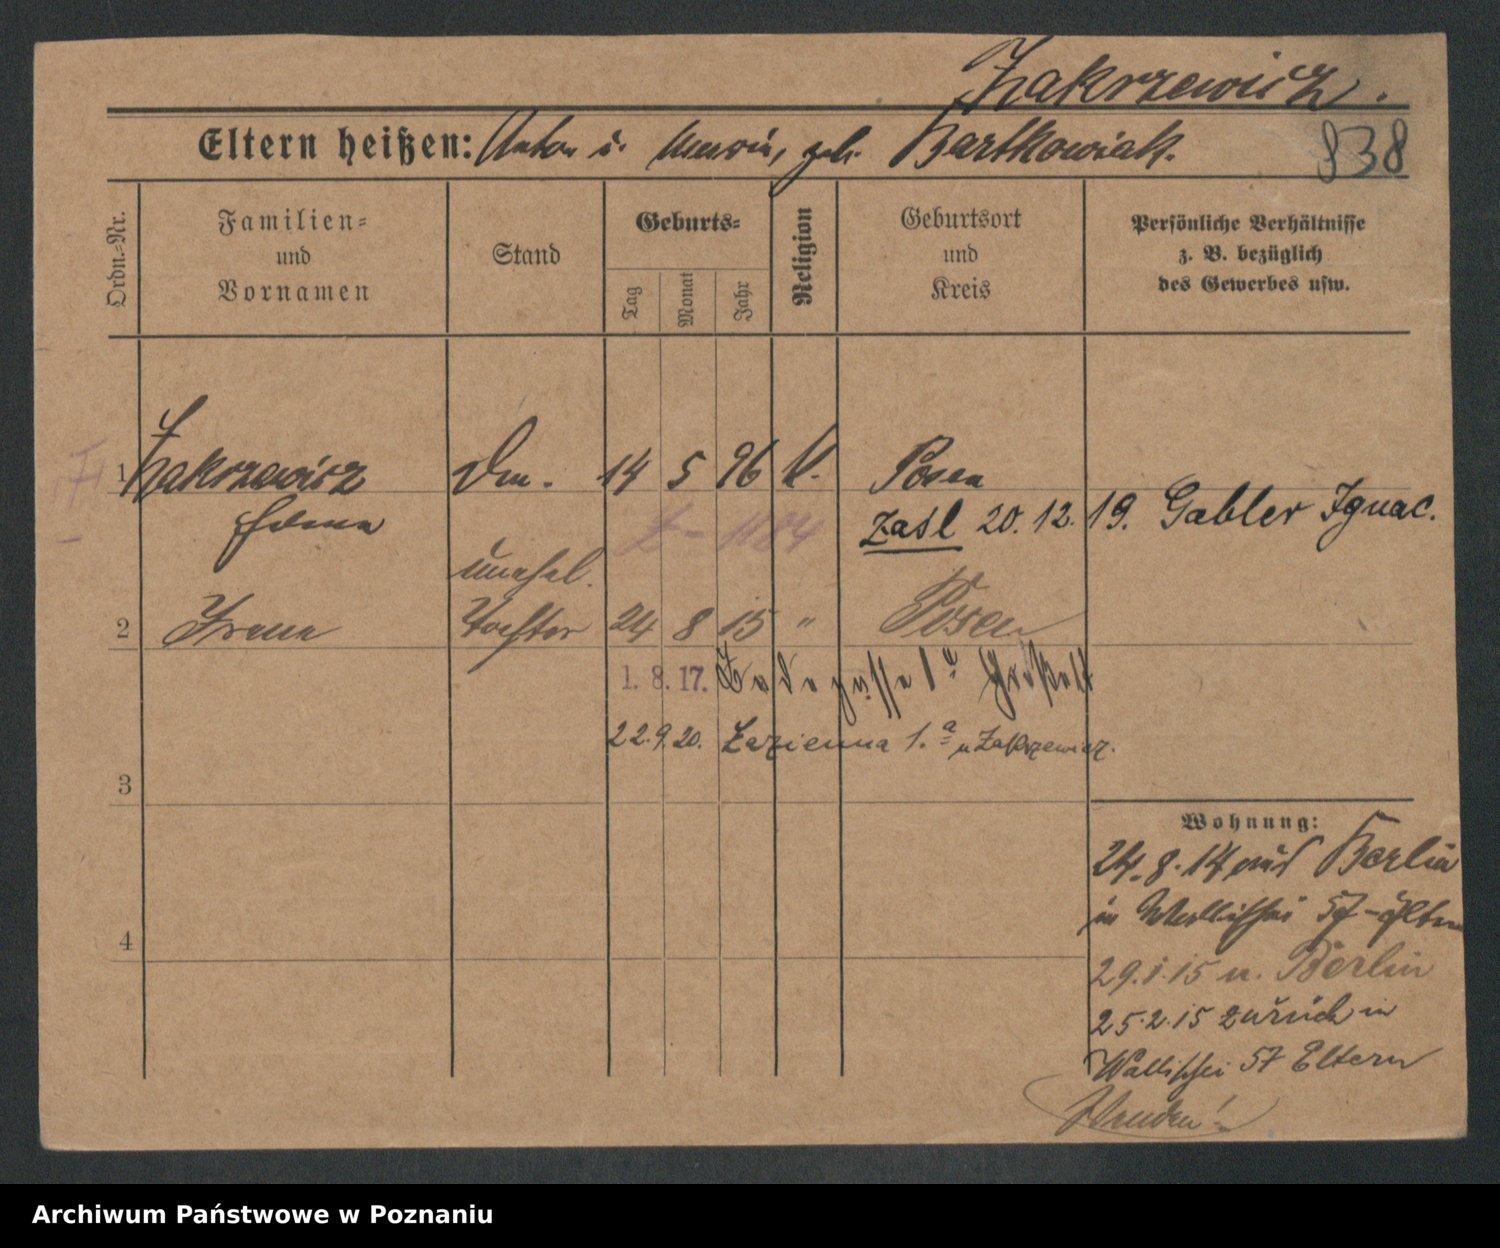 Zakrzewicz.
Eltern heißen: Anton u. Maria, geb. Bartkowiak.
838
Ordn.-Nr.
Familien-
und
Vornamen
Stand
Geburts-
Tag
Monat
Jahr
Religion
Geburtsort
und
Kreis
Persönliche Verhältnisse
z. B. bezüglich
des Gewerbes usw.
1 Zakrzewicz 14 5 96 k. Posen
Zasl 20.12.19. Gabler Ignac.
unehel.
2 Irene Tochter 24 8 15 " Posen
1. 8. 17. Badegasse 1a
22.9.20. Łazienna 1.a u Zakrzewicz.
3
4
Wohnung:
24.8.14 aus Berlin
in Wallischei 57 - Eltern
29.1.15 n. Berlin
25.2.15 zurück in
Wallischei 57 Eltern
Wenden!
Archiwum Państwowe w Poznaniu